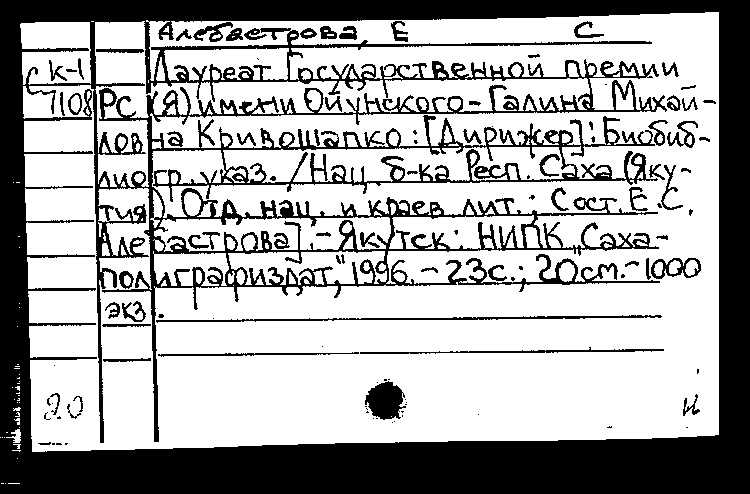 Алебастрова, Е С
С К-1 Лауреат Государственной премии
7108 РС (Я) имени Ойунского - Галина Михай-
ловна Кривошапко : [Дирижер] : Биобиб-
лиогр. указ. / Нац. б-ка Респ. Саха (Яку-
тия). Отд. нац. и краев. лит.; Сост. Е.С.
Алебастрова]. - Якутск : НИПК "Саха-
полиграфиздат," 1996. - 23с.; 20см. - 1000
экз.
20 н